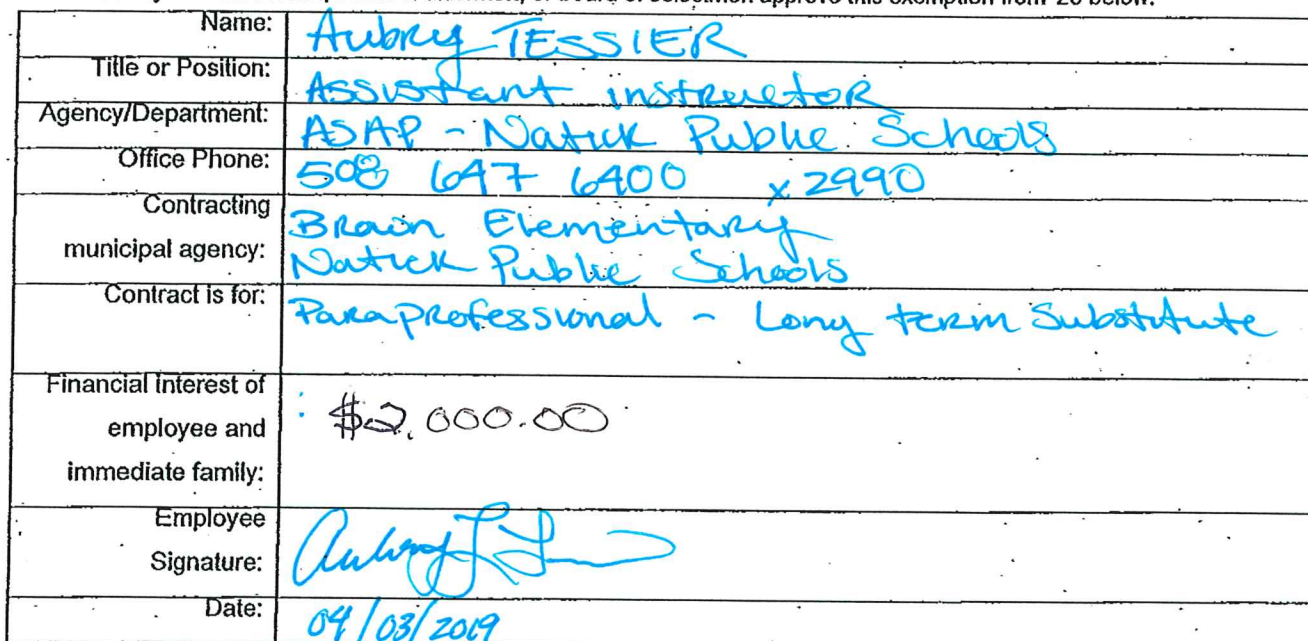 approve this exemption from 20 below.
Name: Aubrey TESSIER
Title or Position: Assistant instructor
Agency/Department: ASAP - Natick Public Schools
Office Phone: 508 647 6400 x2990
Contracting municipal agency: Brown Elementary
Natick Public Schools
Contract is for: Paraprofessional - Long term Substitute
Financial Interest of employee and immediate family: $2,000.00
Employee Signature:
Date: 04/03/2019